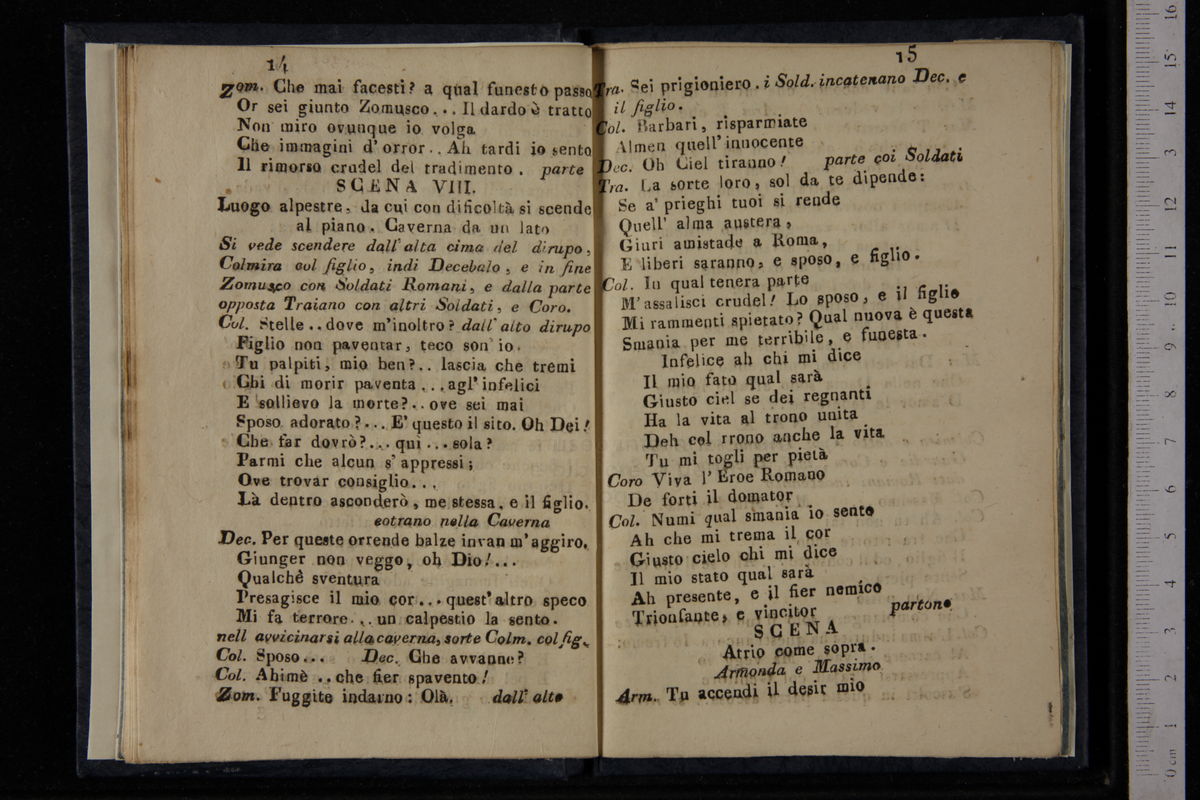 14
Zom. Che mai facesti? a qual funesto passo
Or sei giunto Zomusco... Il dardo è tratto
Non miro ovunque io volga
Che immagini d'orror.. Ah tardi io sento
Il rimorso crudel del tradimento. parte
SCENA VIII.
Luogo alpestre, da cui con dificoltà si scende
al piano. Caverna da un lato
Si vede scendere dall'alta cima del dirupo,
Colmira col figlio, indi Decebalo, e in fine
Zomusco con Soldati Romani, e dalla parte
opposta Traiano con altri Soldati, e Coro.
Col. Stelle.. dove m'inoltro? dall'alto dirupo
Figlio non paventar, teco son io.
Tu palpiti, mio ben?.. lascia che tremi
Chi di morir paventa... agl'infelici
E sollievo la morte?.. ove sei mai
Sposo adorato?... E' questo il sito. Oh Dei!
Che far dovrò?... qui... sola?
Parmi che alcun s'appressi;
Ove trovar consiglio...
Là dentro asconderò, me stessa, e il figlio.
eotrano nella Caverna
Dec. Per queste orrende balze invan m'aggiro.
Giunger non veggo, oh Dio!...
Qualchè sventura
Presagisce il mio cor... quest'altro speco
Mi fa terrore... un calpestio la sento.
nell avvicinarsi alla caverna, sorte Colm. col fig.
Col. Sposo... Dec. Che avvanne?
Col. Ahimè .. che fier spavento!
Zom. Fuggite indarno: Olà. dall' alto
15
Tra. Sei prigioniero. i Sold. incatenano Dec. e
il figlio.
Col. Barbari, risparmiate
Almen quell'innocente
Dec. Oh Ciel tiranno! parte coi Soldati
Tra. La sorte loro, sol da te dipende:
Se a' prieghi tuoi si rende
Quell' alma austera,
Giuri amistade a Roma,
E liberi saranno, e sposo, e figlio.
Col. In qual tenera parte
M'assalisci crudel! Lo sposo, e il figlio
Mi rammenti spietato? Qual nuova è questa
Smania per me terribile, e funesta.
Infelice ah chi mi dice
Il mio fato qual sarà
Giusto ciel se dei regnanti
Ha la vita al trono unita
Deh col rrono anche la vita
Tu mi togli per pietà
Coro Viva l'Eroe Romano
De forti il domator
Col. Numi qual smania io sento
Ah che mi trema il cor
Giusto cielo chi mi dice
Il mio stato qual sarà
Ah presente, e il fier nemico
Trionfante, e vincitor partono
SCENA
Atrio come sopra.
Armonda e Massimo
Arm. Tu accendi il desir mio